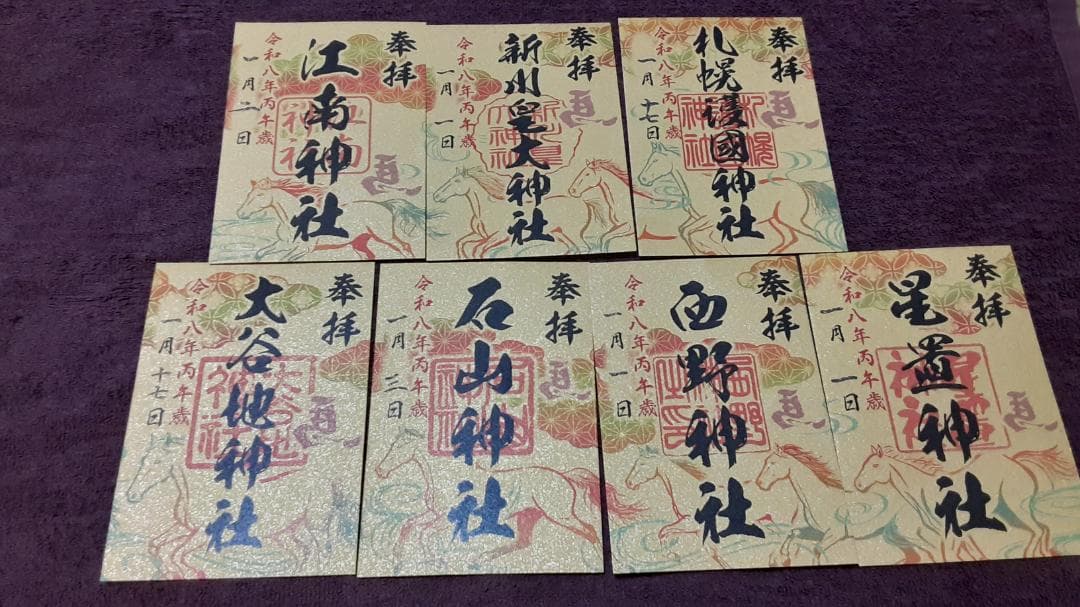 奉拝
江南神社
令和八年丙午歳
一月二日
馬
奉拝
新川皇大神社
令和八年丙午歳
一月一日
馬
奉拝
札幌護國神社
令和八年丙午歳
一月十七日
馬
奉拝
大谷地神社
令和八年丙午歳
一月十七日
馬
奉拝
石山神社
令和八年丙午歳
一月三日
馬
奉拝
西野神社
令和八年丙午歳
一月一日
馬
奉拝
星置神社
令和八年丙午歳
一月一日
馬